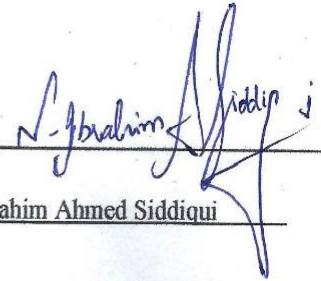 N-Ibrahim A Siddiqi
ahim Ahmed Siddiqui